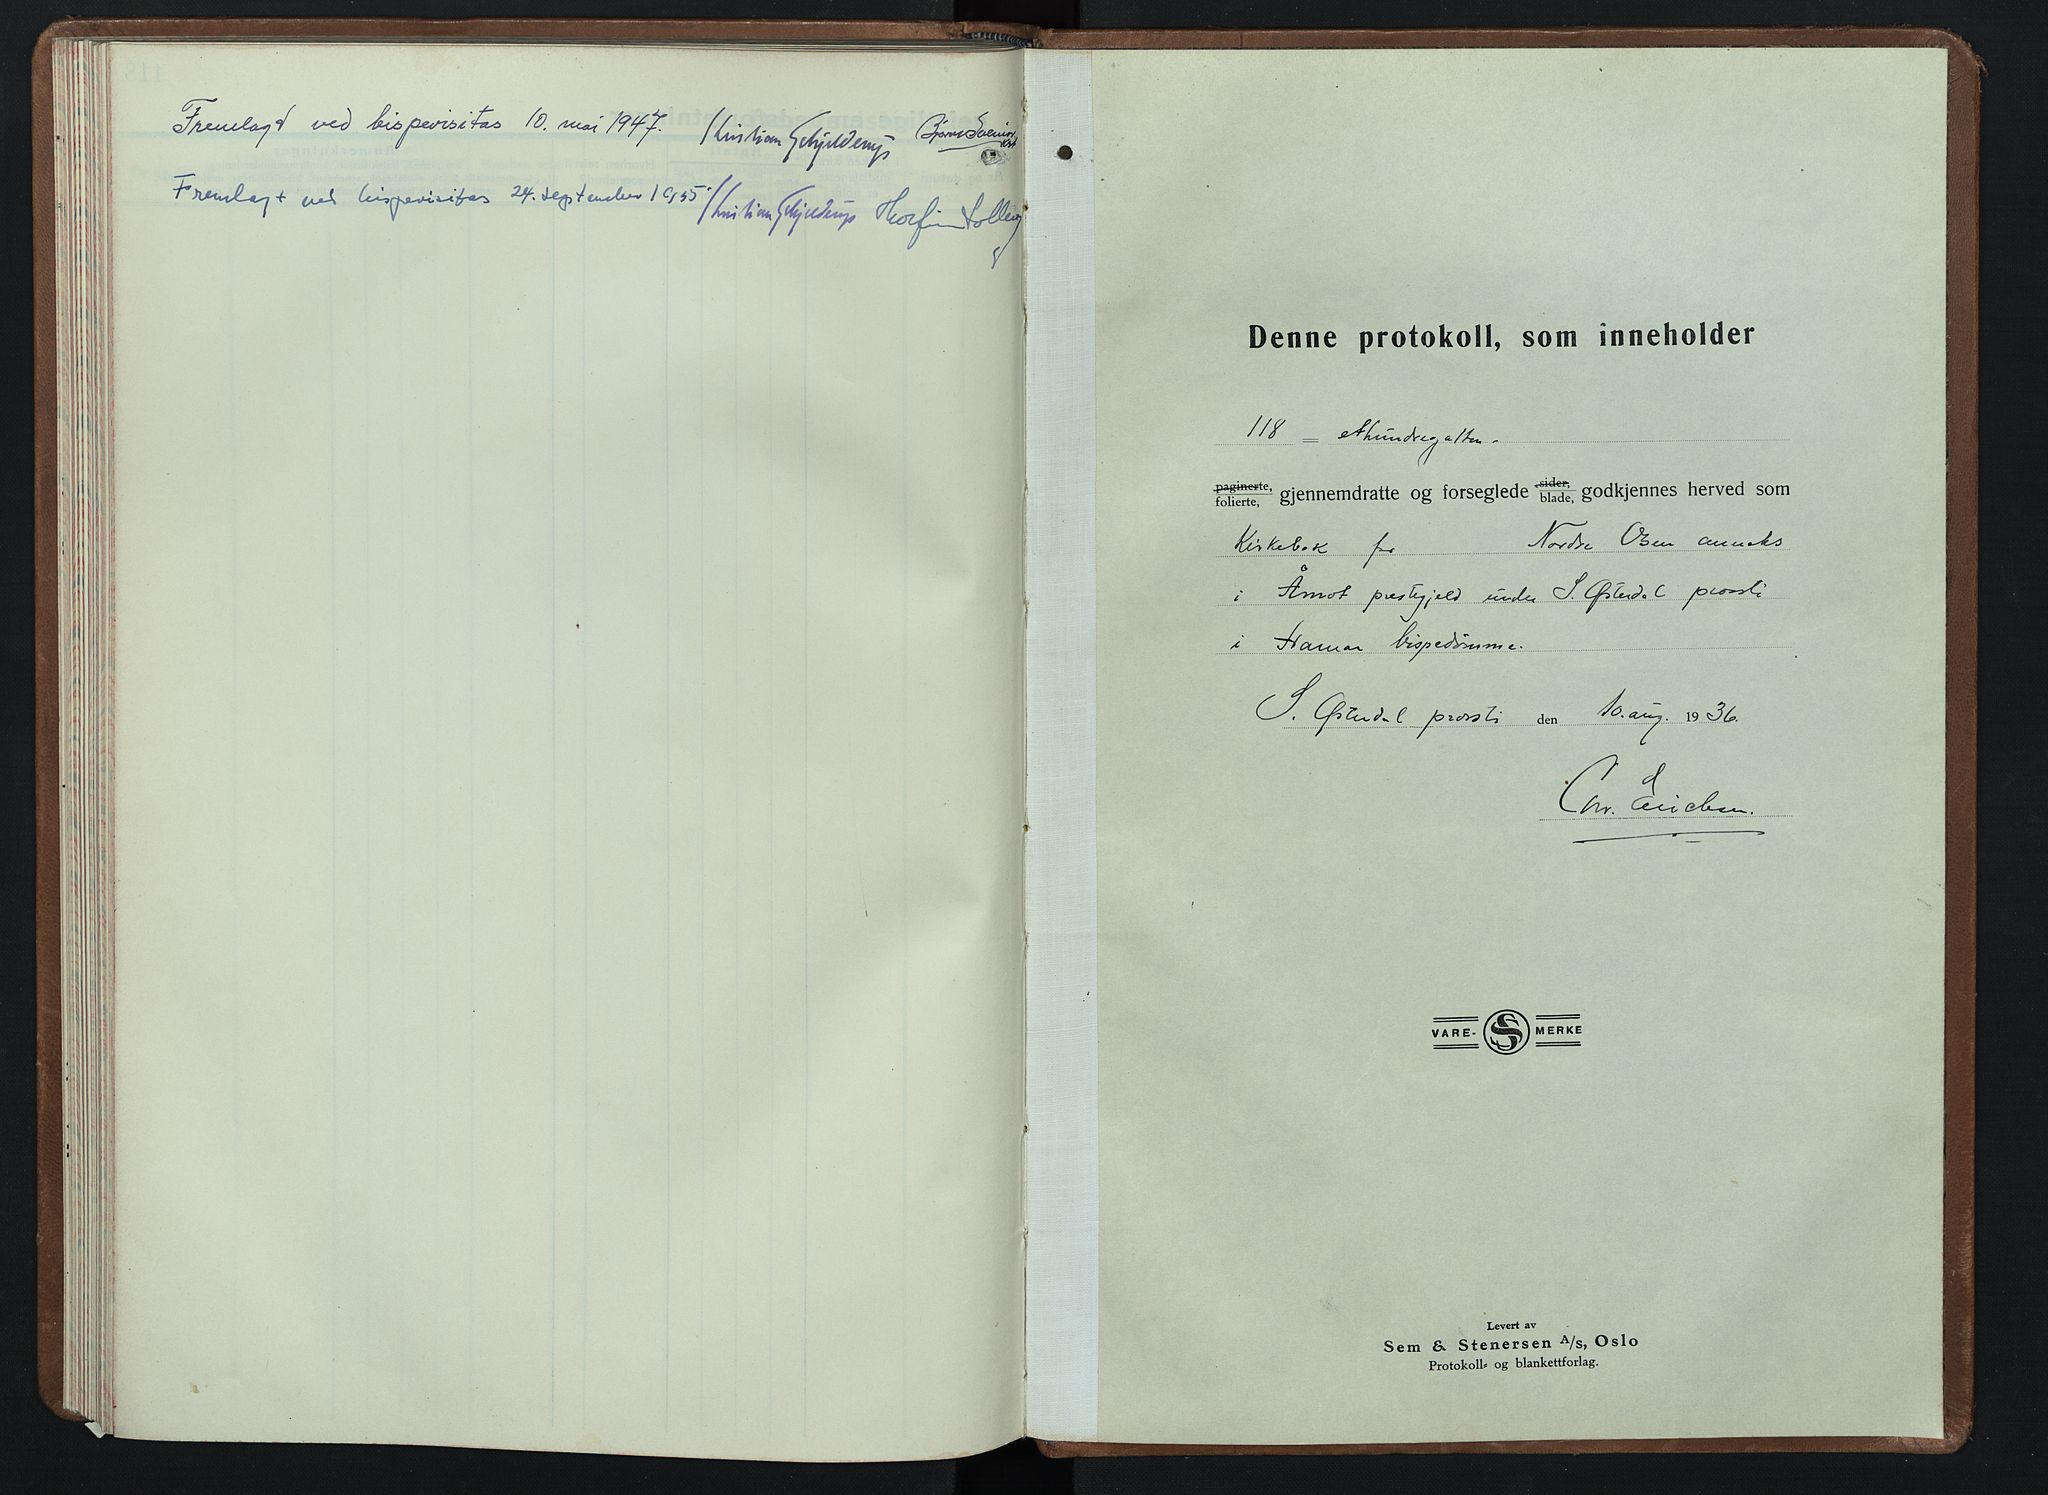 Fremlagd ved bispevisitas 10. mai 1947. Kristian Schjelderup
Fremlagt ved bispevisitas 24. september 1955. Kristian Schjelderup
Denne protokoll, som inneholder
118 = ethundregatten.
paginerte, folierte, gjennemdratte og forseglede sider, blade, godkjennes herved som
Kirkebok for Nordre Osen anneks
i Åmot prestegjeld under S. Østerdal prosti
i Hamar bispedømme.
S. Østerdal prosti den 10. aug. 1936.
Chr. Erichsen.
VARE- S MERKE
Levert av
Sem & Stenersen A/s, Oslo
Protokoll- og blankettforlag.